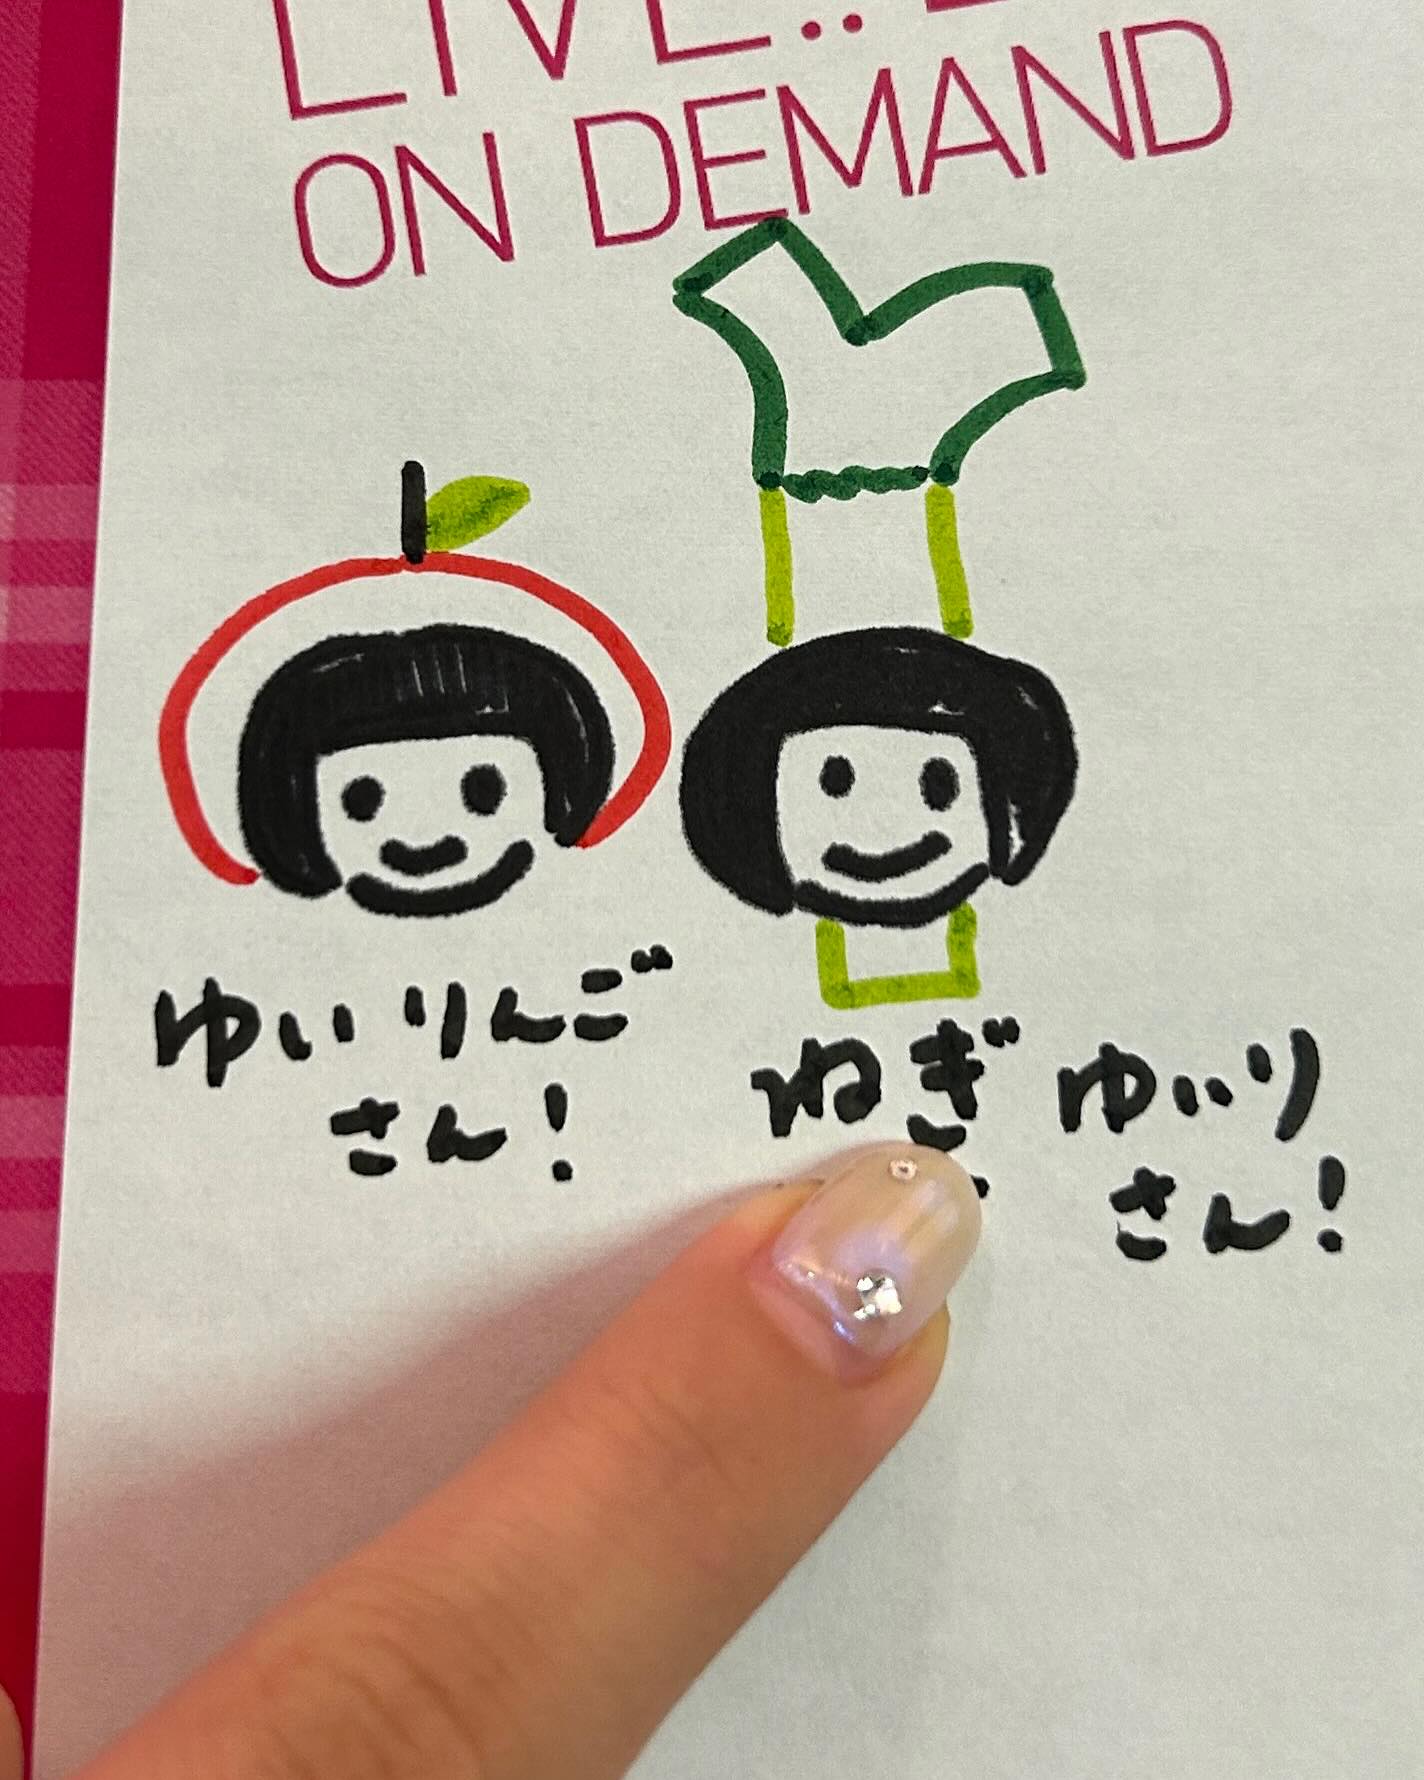 LIVE..
ON DEMAND
ゆいりんご
さん!
ねぎ ゆいり
さん!